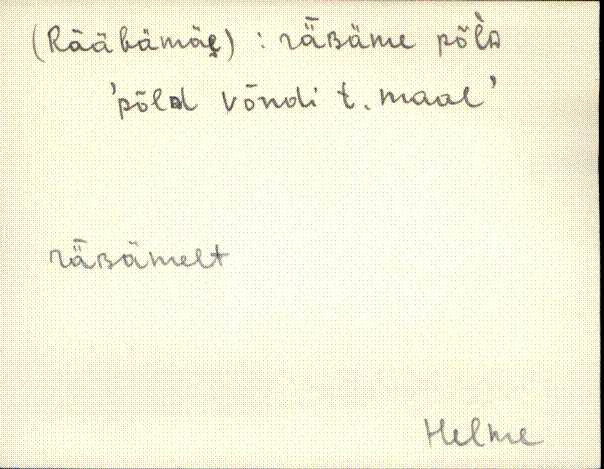 (Rääbämäe) : rǟʙäme põl̀ᴅ
'põld Võndi t. maal'
rǟʙämelt
Helme